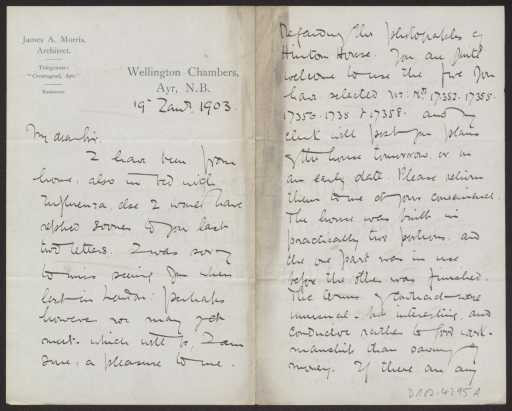 James A. Morris,
Architect.
Telegrams:
Wellington Chambers,
Ayr, N.B.
19 Janry. 1903.
My dear Sir,
I have been from
home, also in bed with
Influenza, else I would have
replied sooner to your last
two letters. I was sorry
to miss seeing you when
last in London: perhaps
however we may yet
meet, which will be, I am
sure, a pleasure to me.
Regarding the photographs of
House. You are quite
welcome to use the five you
have selected viz: Nos 17352. 17355.
17350. 1735 & 17358. and my
client will post you plans
of the house tomorrow, or on
an early date. Please return
them to me at your convenience.
The house was built in
practically two portions, and
the one part was in use
before the other was finished.
The terms of contract were
unusual, but interesting, and
conducive rather to good work-
manship than saving of
money. If there are any